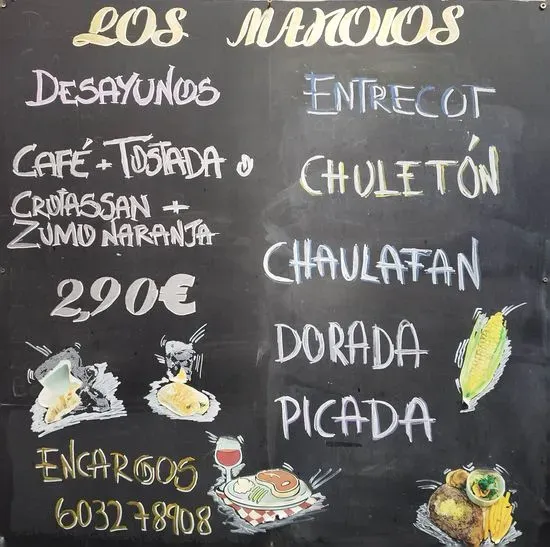 LOS MANOLOS
DESAYUNOS
CAFÉ + TOSTADA o
CRUTASSAN +
ZUMO NARANJA
2,90€
ENCARGOS
603278908
ENTRECOT
CHULETÓN
CHAULAFAN
DORADA
PICADA